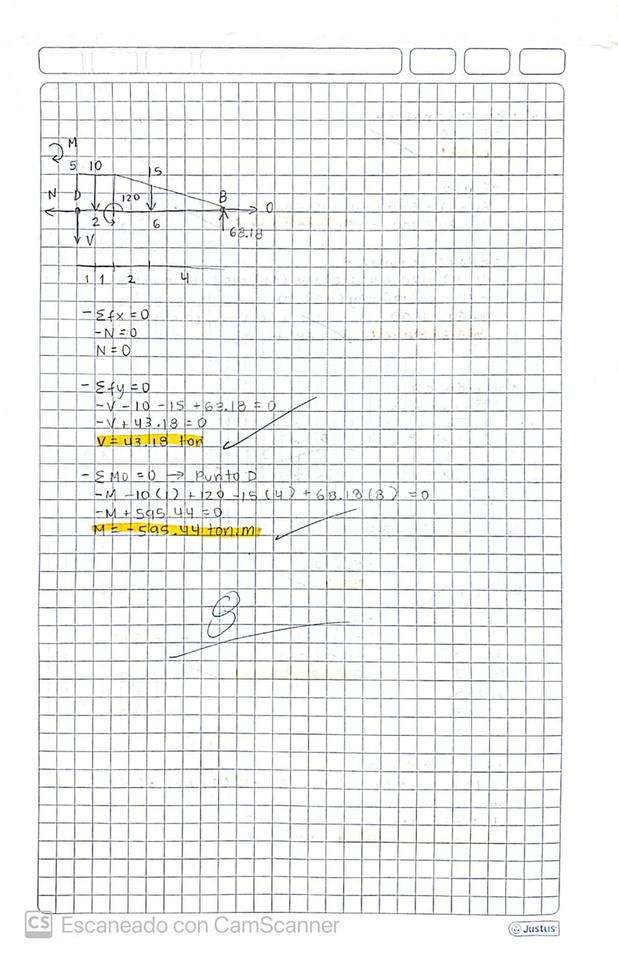 M
5 10 15
N D 120 B 0
2 6 68.18
V
1 1 2 4
- Σfx = 0
-N = 0
N = 0
- Σfy = 0
-V - 10 - 15 + 68.18 = 0
-V + 43.18 = 0
V = 43.18 ton
- ΣM0 = 0 → Punto D
-M - 10(1) + 120 - 15(4) + 68.18(8) = 0
-M + 595.44 = 0
M = -595.44 ton.m
8
CS Escaneado con CamScanner
Justus